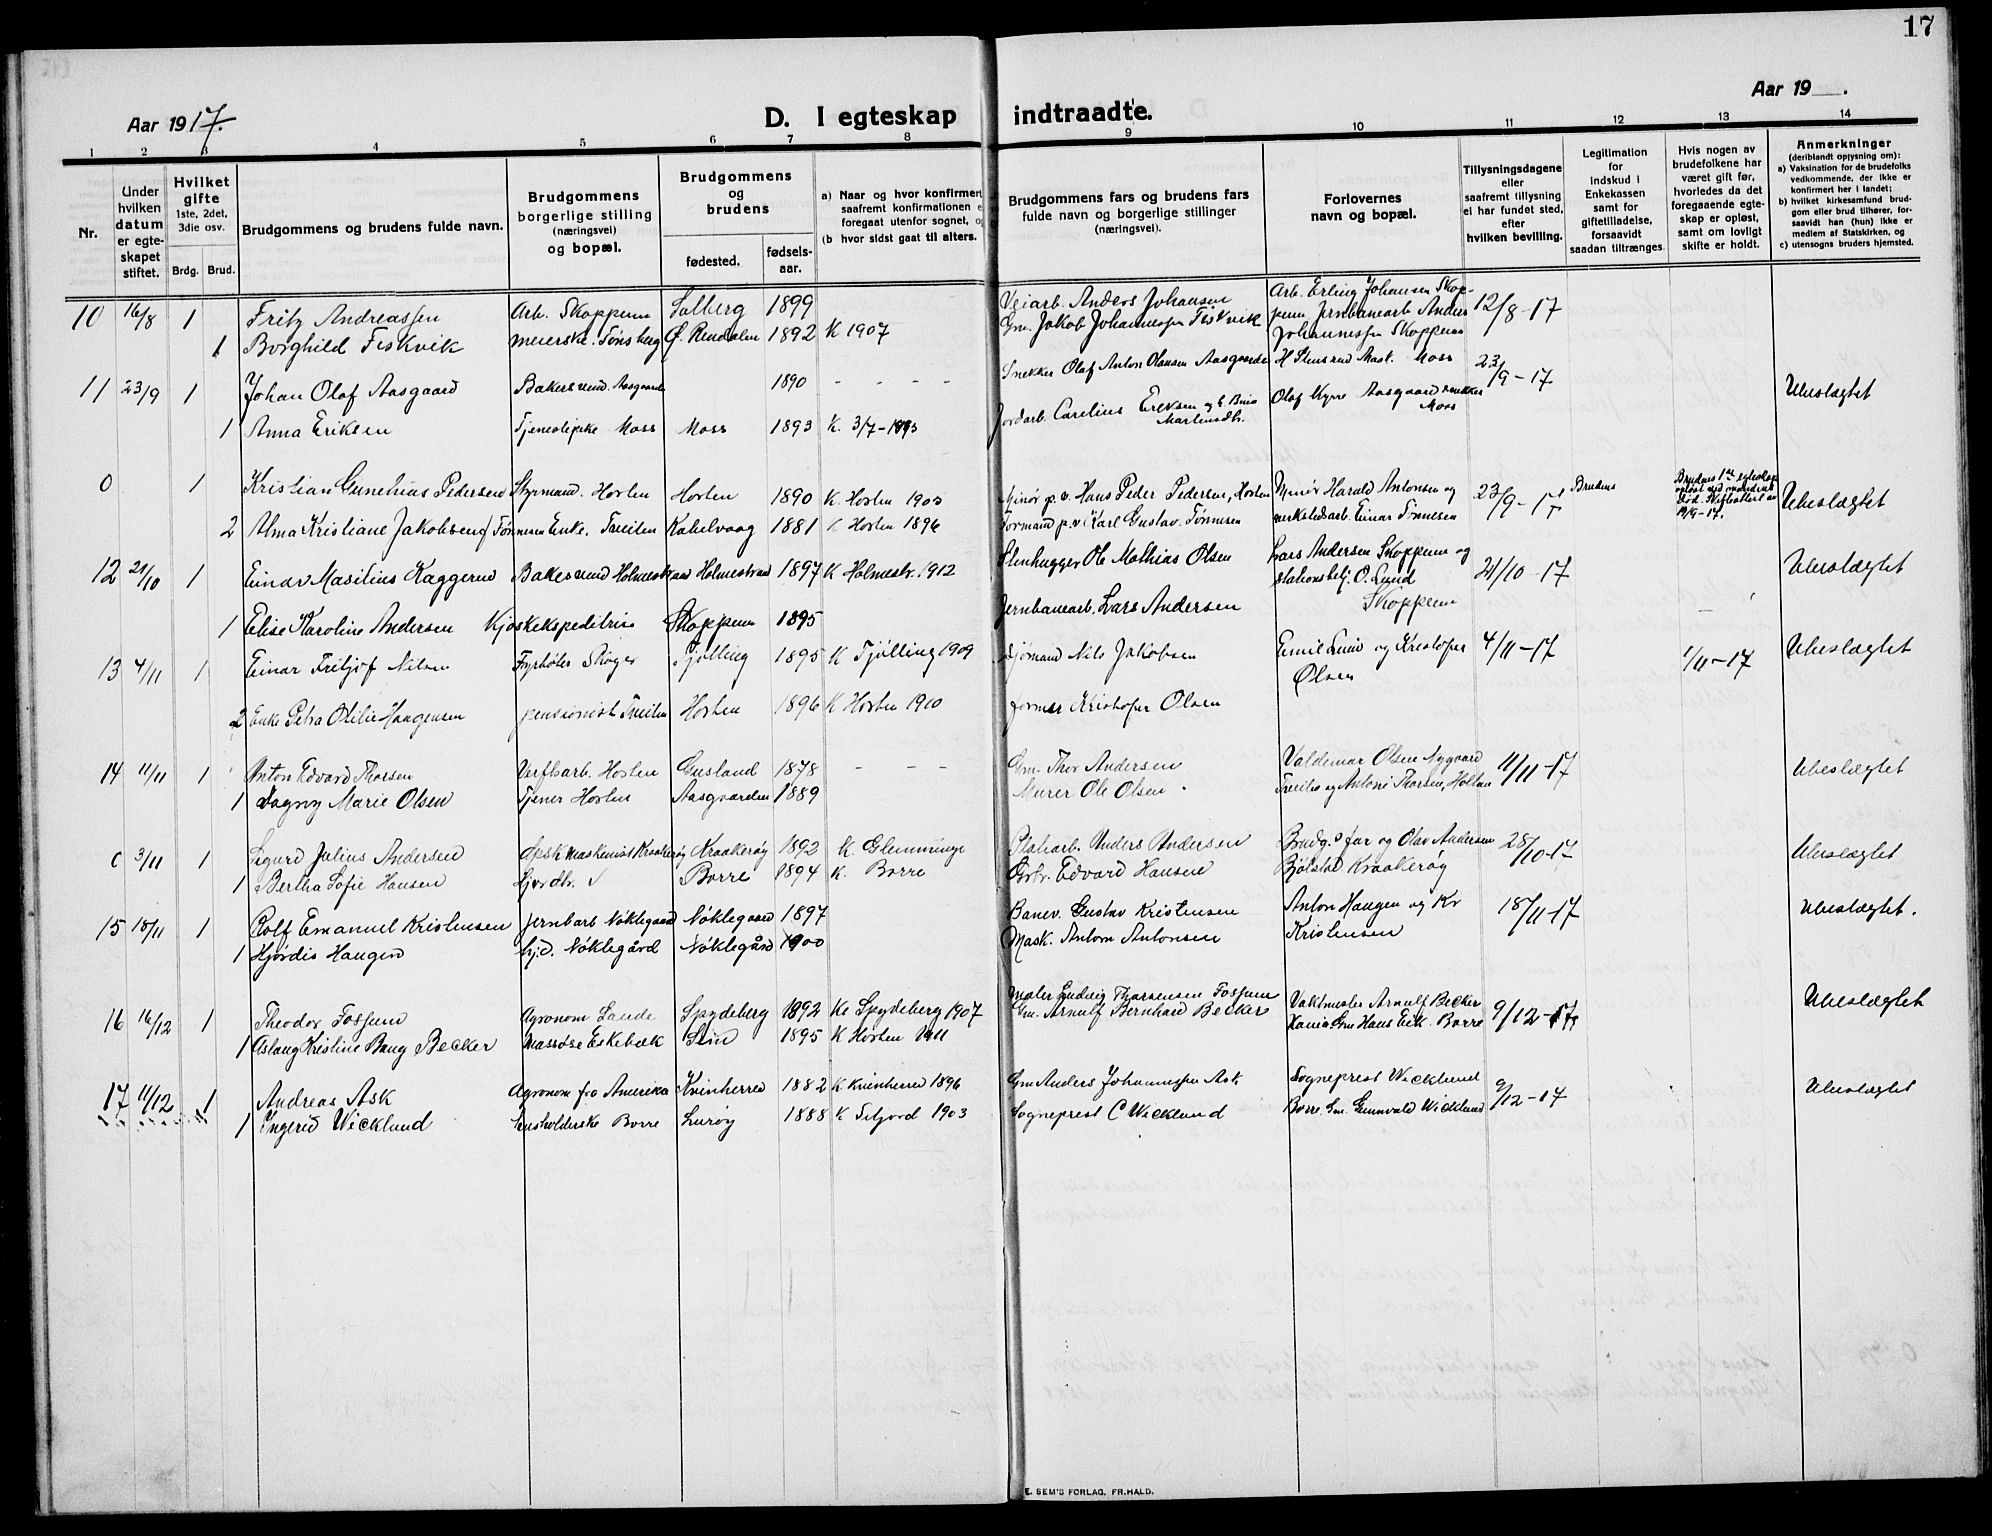 17
Aar 1917. D. I egteskap indtraadte. Aar 19 .
1 2 3 4 5 6 7 8 9 10 11 12 13 14
Nr.
Under hvilken datum er egteskapet stiftet.
Hvilket gifte 1ste, 2det, 3die osv.
Brdg. Brud.
Brudgommens og brudens fulde navn.
Brudgommens borgerlige stilling (næringsvei) og bopæl.
Brudgommens og brudens
fødested. fødsels-aar.
a) Naar og hvor konfirmert
saafremt konfirmationen
foregaat utenfor sognet,
(b hvor sidst gaat til alters.
Brudgommens fars og brudens fars fulde navn og borgerlige stillinger (næringsvei).
Forlovernes navn og bopæl.
Tillysningsdagene eller saafremt tillysning ei har fundet sted, efter hvilken bevilling.
Legitimation for indskud i Enkekassen samt for giftetilladelse, forsaavidt saadan tiltrænges.
Hvis nogen av brudefolkene har været gift før, hvorledes da det foregaaende egteskap er opløst, samt om lovligt skifte er holdt.
Anmerkninger
(deriblandt opjysning om):
a) Vaksination for de brudefolks vedkommende, der ikke er konfirmert her i landet;
b) hvilket kirkesamfund brudgom eller brud tilhører, forsaavidt han (hun) ikke er medlem af Statskirken, og
c) utensogns bruders hjemsted.
10 16/8 1 Fritz Andreassen Arb. Skoppum Solberg 1899 Veiarb. Anders Johansen Arb. Erling Johansen Skop- 12/8-17
1 Borghild Fiskvik meierske. Tønsberg Ø. Rendalen 1892 K 1907 Gm. Jakob Johannesen Fiskvik pum jernbanearb Anders
Johannesen Skoppum
11 23/9 1 Johan Olaf Aasgaard Bakersvend. Aasgaarden 1890 - - - - Snekker Olaf Anton Olausen Aasgaarden Mask. Moss 23/9-17 Ubeslægtet
1 Anna Eriksen Tjenestepike Moss Moss 1893 K. 3/7- Jordarb. Carelius Eriksen Olaf Kyrre Aasgaard snekker
Moss
0 1 Kristian Pedersen Styrmand. Horten Horten 1890 K. Horten 1905 Minør p.v. Hans Peder Pedersen, Horten Minør Harald Antonsen og 23/9-17 Brudens Brudens 1ste egteskap Ubeslægtet
2 Alma Kristiane Jakobsen f Tønnesen Enke. Tveiten Kabelvaag 1881 K Horten 1896 Formand p.v Karl Gustav. Tønnesen verkstedsarb. Einar Tønnesen
12 21/10 1 Einar Masilius Kaggerud Bakersvend Holmestrand Holmestrand 1897 K Holmestr. 1912 Stenhugger Ole Mathias Olsen Lars Andersen Skoppum og 21/10-17 Ubeslægtet
stationsbetj. O. Lund
1 Elise Karoline Andersen Kjoskekspeditrise Skoppum 1895 Jernbanearb. Lars Andersen Skoppum
13 4/11 1 Einar Fritjof Nilsen Fyrbøter Skoger Tjølling 1895 K Tjølling 1909 Sjømand Nils Jakobsen Emil Lund og Kristofer 4/11-17 1/11-17 Ubeslægtet
Olsen
2 Enke Petra Otilie Haagensen pensionist Tveiten Horten 1896 K Horten 1910 former Kristofer Olsen
14 11/11 1 Anton Edvard Thorsen Verftsarb. Horten Gusland 1878 - - - Gm. Thor Andersen Valdemar Olsen Nygaard 11/11-17 Ubeslægtet
1 Dagny Marie Olsen Tjener Horten Aasgaarden 1889 Murer Ole Olsen Tveiten og Antoni Thorsen, Holtan
0 3/11 1 Sigurd Julius Andersen maskenist Kraakerøy Kraakerøy 1892 K. Glemminge Platearb. Anders Andersen Brudg.s far og Olav Andersen 28/10-17 Ubeslægtet
1 Bertha Sofie Hansen Borre 1894 K. Borre Edvard Hansen Bjølstad Kraakerøy
15 18/11 1 Rolf Emanuel Kristensen Jernbarb Nøklegaard Nøklegaard 1897 Banev. Gustav Kristensen Anton Haugen og Kr 18/11-17 Ubeslægtet.
1 Hjørdis Haugen hj.d. Nøklegård Nøklegård 1900 Mask. Antom Antonsen Kristensen
16 16/12 1 Theodor Fossum Agronom Sande Spydeberg 1892 K Spydeberg 1907 Maler Ludvig Thorsensen Fossum Vaktmester Arnulf Becker 9/12-17 Ubeslægtet
1 Aslaug Kristine Bang Becker Massøse Eskebæk 1895 K Horten Gm. Arnulf Bernhard Becker Gm Hans Eik. Borre
17 11/12 1 Andreas Ask Agronom fra Amerika Kvinherred 1882 K Kvinherred 1896 Gm Anders Johannesen Ask Sogneprest Wicklund 9/12-17 Ubeslægtet
1 Ingerid Wicklund husholderske Borre Lurøy 1888 K Seljord 1903 Sogneprest C Wicklund Borre. Gm. Gunnvald Wicklund
E. SEM'S FORLAG, FR.HALD.